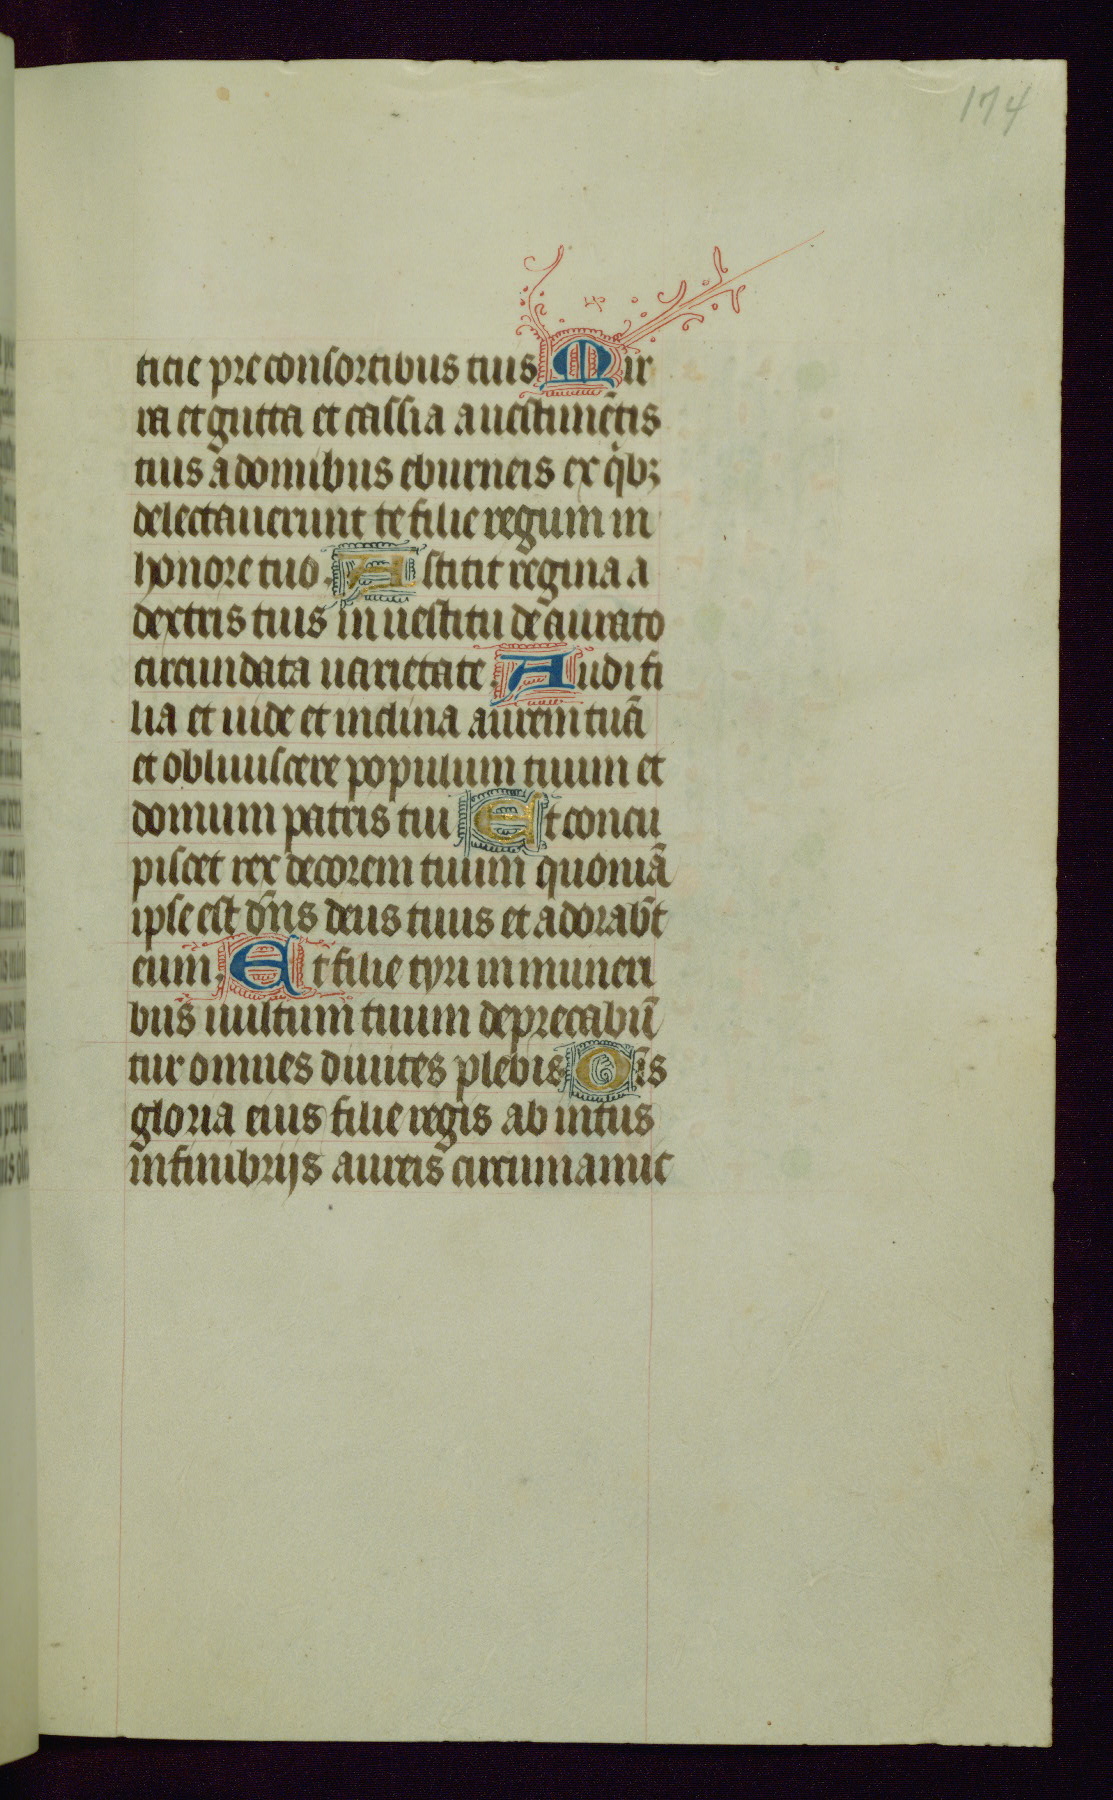 174
ticie pre consortibus tuis Mir
ra et gutta et cassia a uestimētis
tuis a domibus eburneis ex qͥbꝫ
delectauerunt te filie regum in
honore tuo. Astitit regina a
dextris tuis in uestitu deaurato
circundata uarietate. Audi fi
lia et uide et inclina aurem tuā
et obliuiscere populum tuum et
domum patris tui Et concu
piscet rex decorem tuum quoniā
ipse est dn̄s deus tuus et adorab̄t
eum. Et filie tyri in muneri
bus uultum tuum deprecabū
tur omnes diuites plebis Oīs
gloria eius filie regis ab intus
in finibrijs aureis circumamic